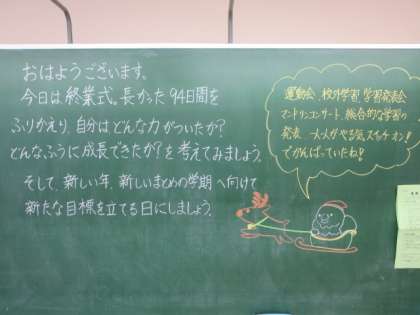 おはようございます。
今日は終業式。長かった94日間を
ふりかえり、自分はどんな力がついたか？
どんなふうに成長できたか？を考えてみましょう。
そして、新しい年、新しいまとめの学期へ向けて
新たな目標を立てる日にしましょう。
運動会、校外学習、学習発表会
マンドリンコンサート、総合的な学習の
発表…大人がやる気スイッチオン！
でがんばっていたね！